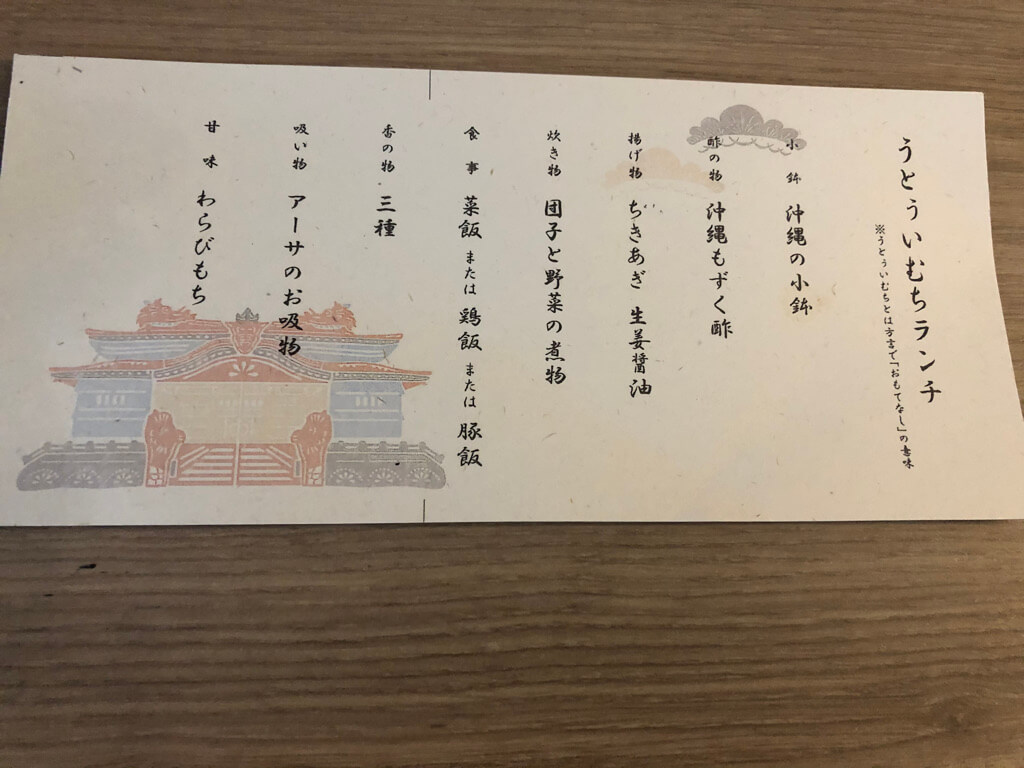 うとぅいむちランチ
※うとぅいむちとは方言で「おもてなし」の意味
小鉢 沖縄の小鉢
酢の物 沖縄もずく酢
揚げ物 ちきあぎ 生姜醤油
炊き物 団子と野菜の煮物
食事 菜飯 または 鶏飯 または 豚飯
香の物 三種
吸い物 アーサのお吸物
甘味 わらびもち